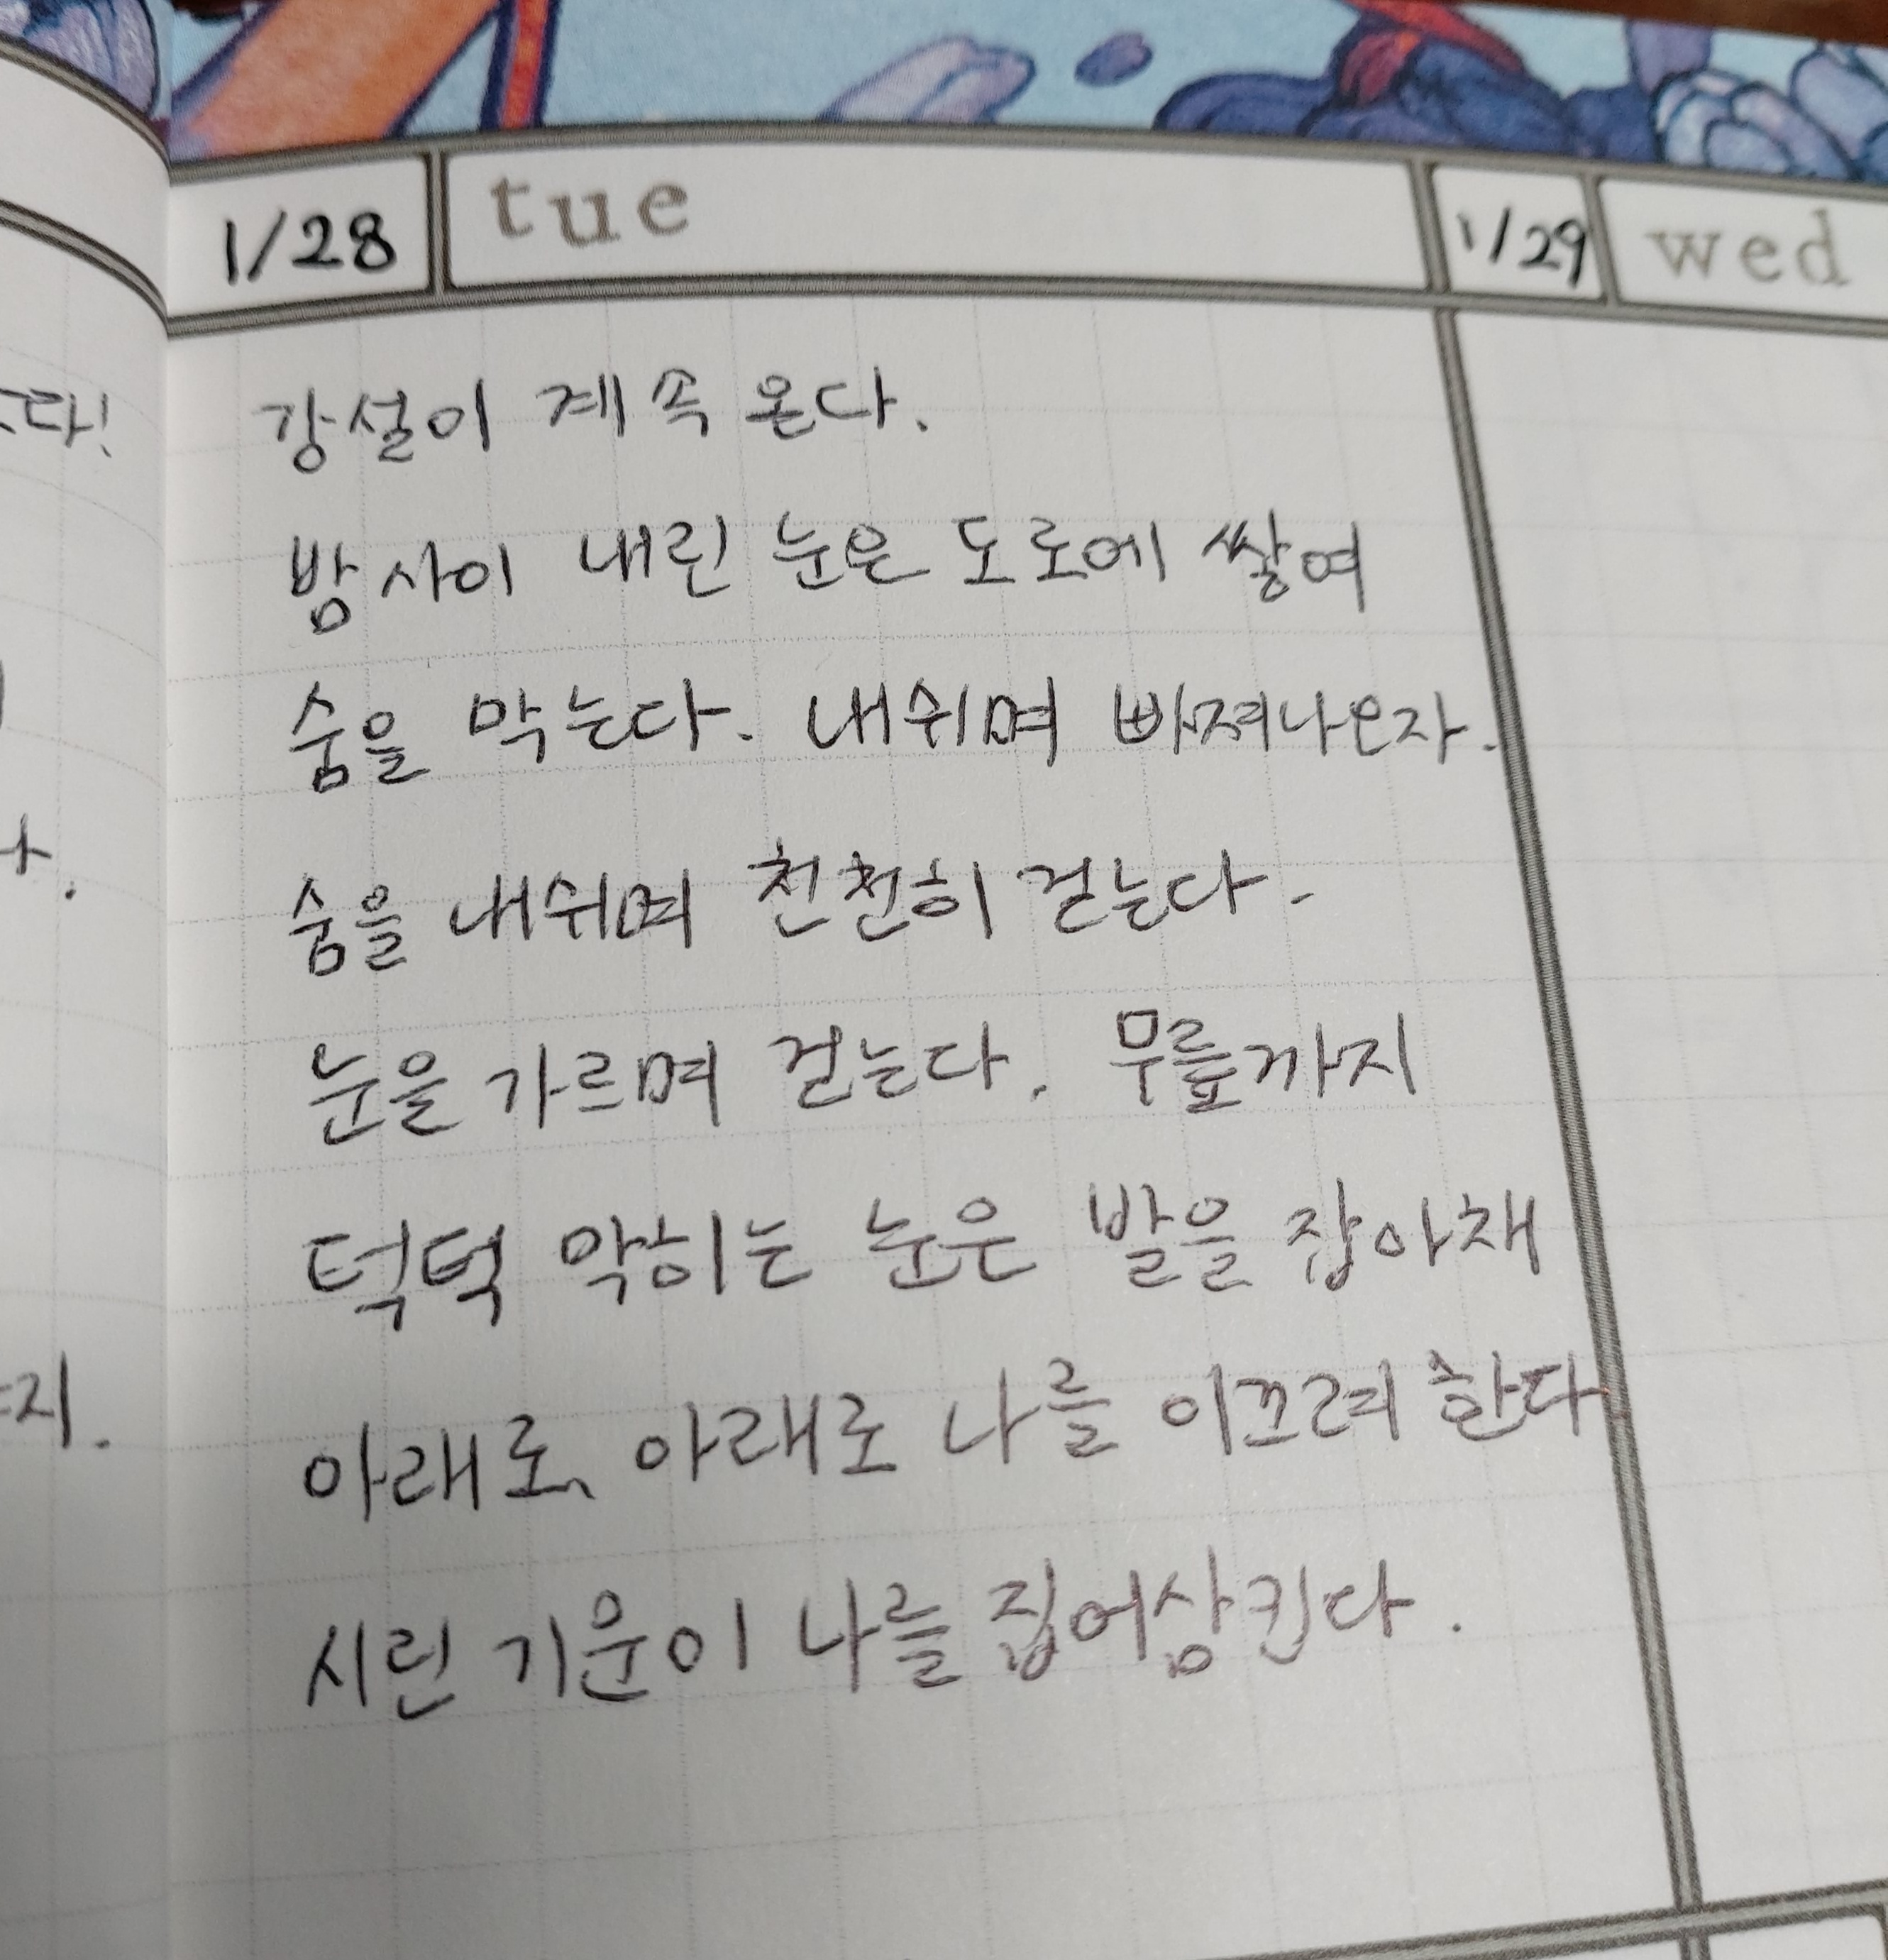 1/28 tue 1/29 wed
다!
강설이 계속 온다.
밤사이 내린 눈은 도로에 쌓여
숨을 막는다. 내쉬며 빠져나오자.
숨을 내쉬며 천천히 걷는다.
눈을 가르며 걷는다. 무릎까지
턱턱 막히는 눈은 발을 잡아채
지.
아래로, 아래로 나를 이끄려 한다
시린 기운이 나를 집어삼킨다.